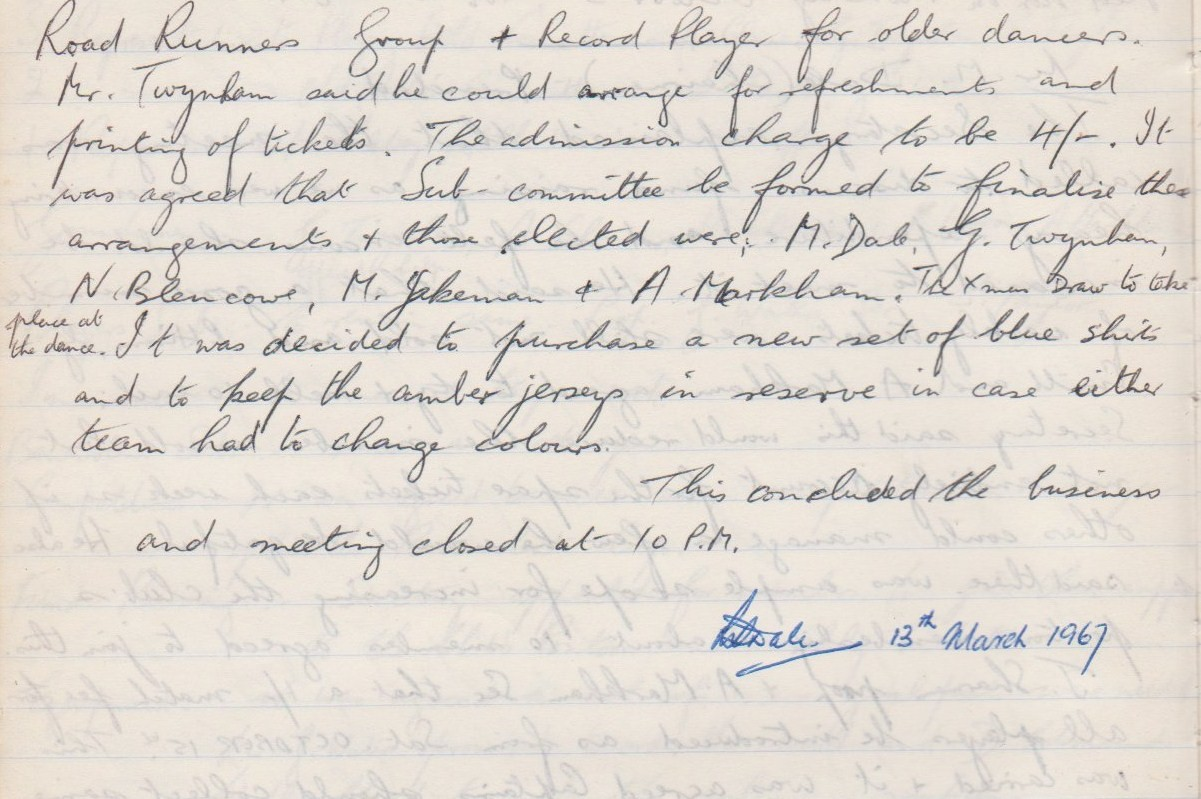 Road Runners Group + Record Player for older dancers.
Mr. Twynham said he could arrange for refreshments and
printing of tickets. The admission charge to be 4/-. It
was agreed that Sub-committee be formed to finalise the
arrangements + those elected were; M. Dale, G. Twynham,
N. Blencowe, M. Jakeman & A Markham. The Xmas Draw to take
place at
the dance. It was decided to purchase a new set of blue shirts
and to keep the amber jerseys in reserve in case either
team had to change colours.
This concluded the business
and meeting closed at 10 P.M.
Dale 13th March 1967